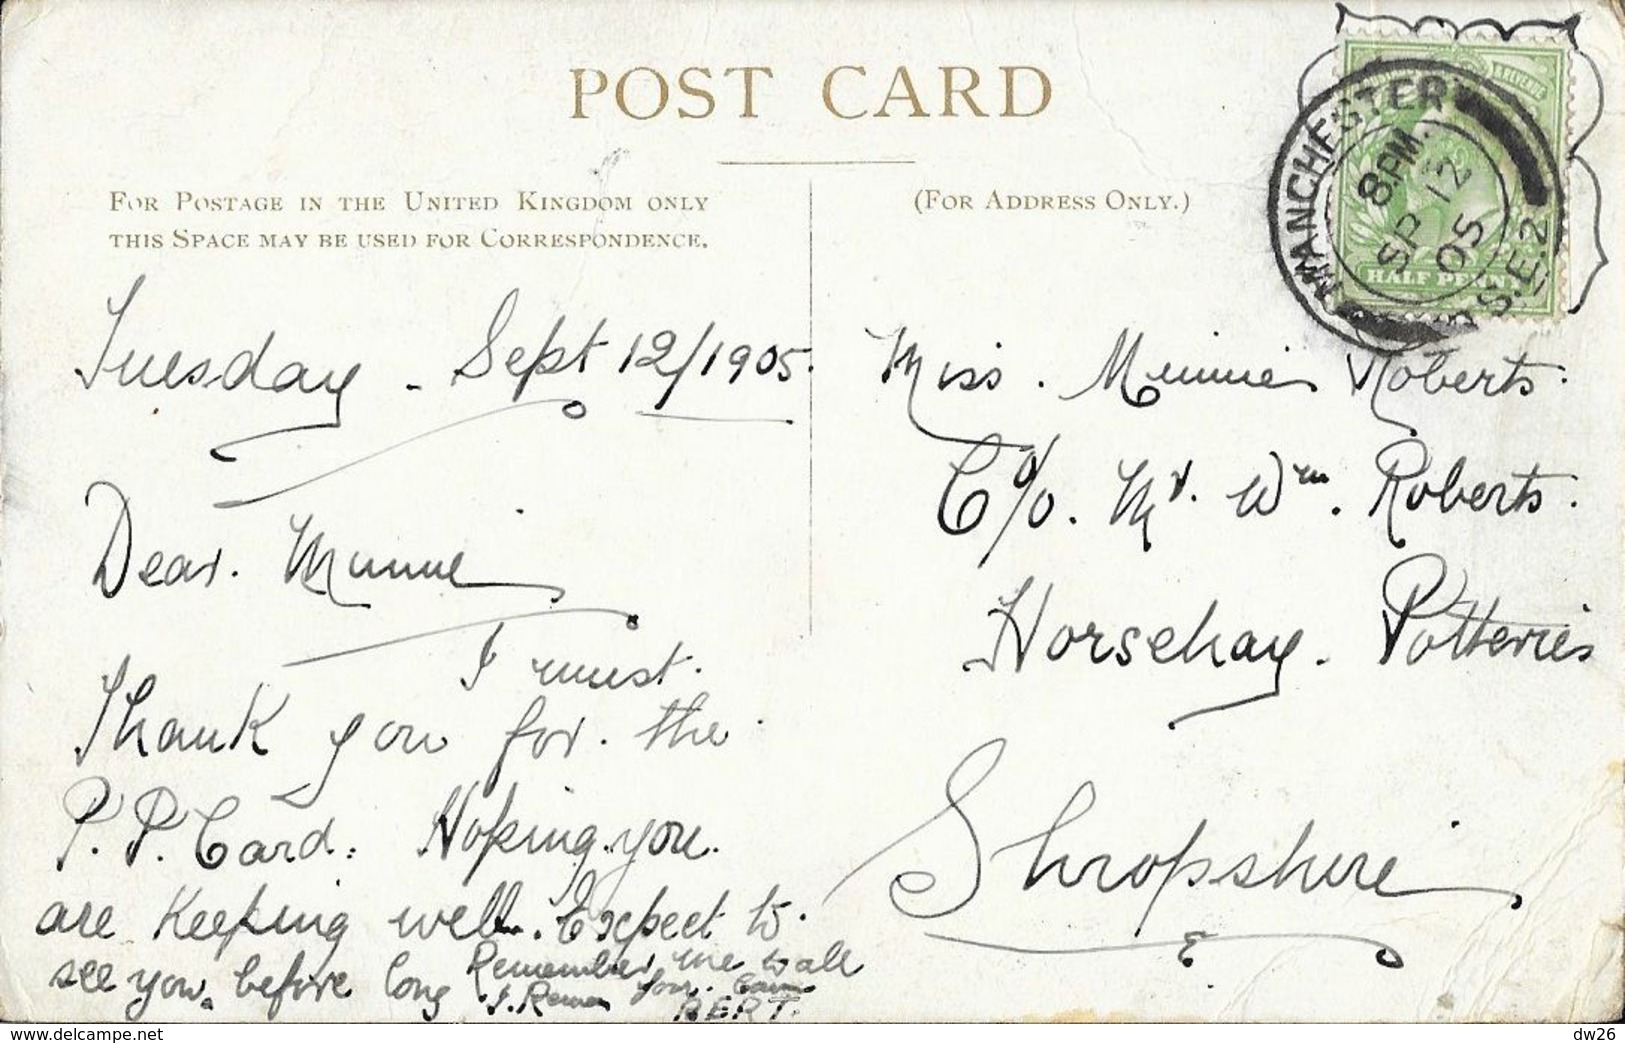 POST CARD
FOR POSTAGE IN THE UNITED KINGDOM ONLY
THIS SPACE MAY BE USED FOR CORRESPONDENCE.
(FOR ADDRESS ONLY.)
MANCHESTER
8 PM
SP 12
05
S.E.2
& REVENUE
HALF PENNY
Tuesday - Sept 12/1905.
Dear. Minnie
I must.
Thank you for. the
P. P. Card: Hoping you.
are keeping well. Expect to.
see you. before long
Remember me to all
I. Remain your.
BERT.
Miss. Minnie Roberts.
C/o. Mr. Wm. Roberts.
Horsehay. Potteries
Shropshire
dw26